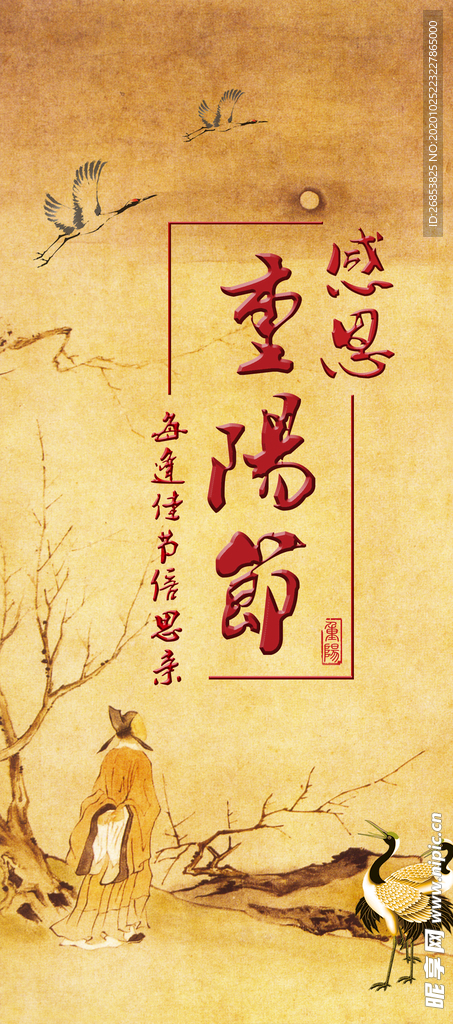 感恩
重陽節
每逢佳节倍思亲
重陽
ID:26853825 NO:20201025223227865000
昵享网 www.nipic.cn